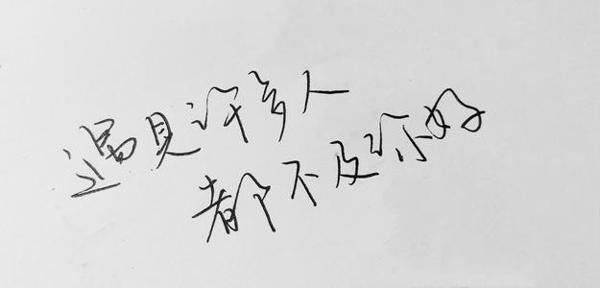 遇见许多人
都不及你好